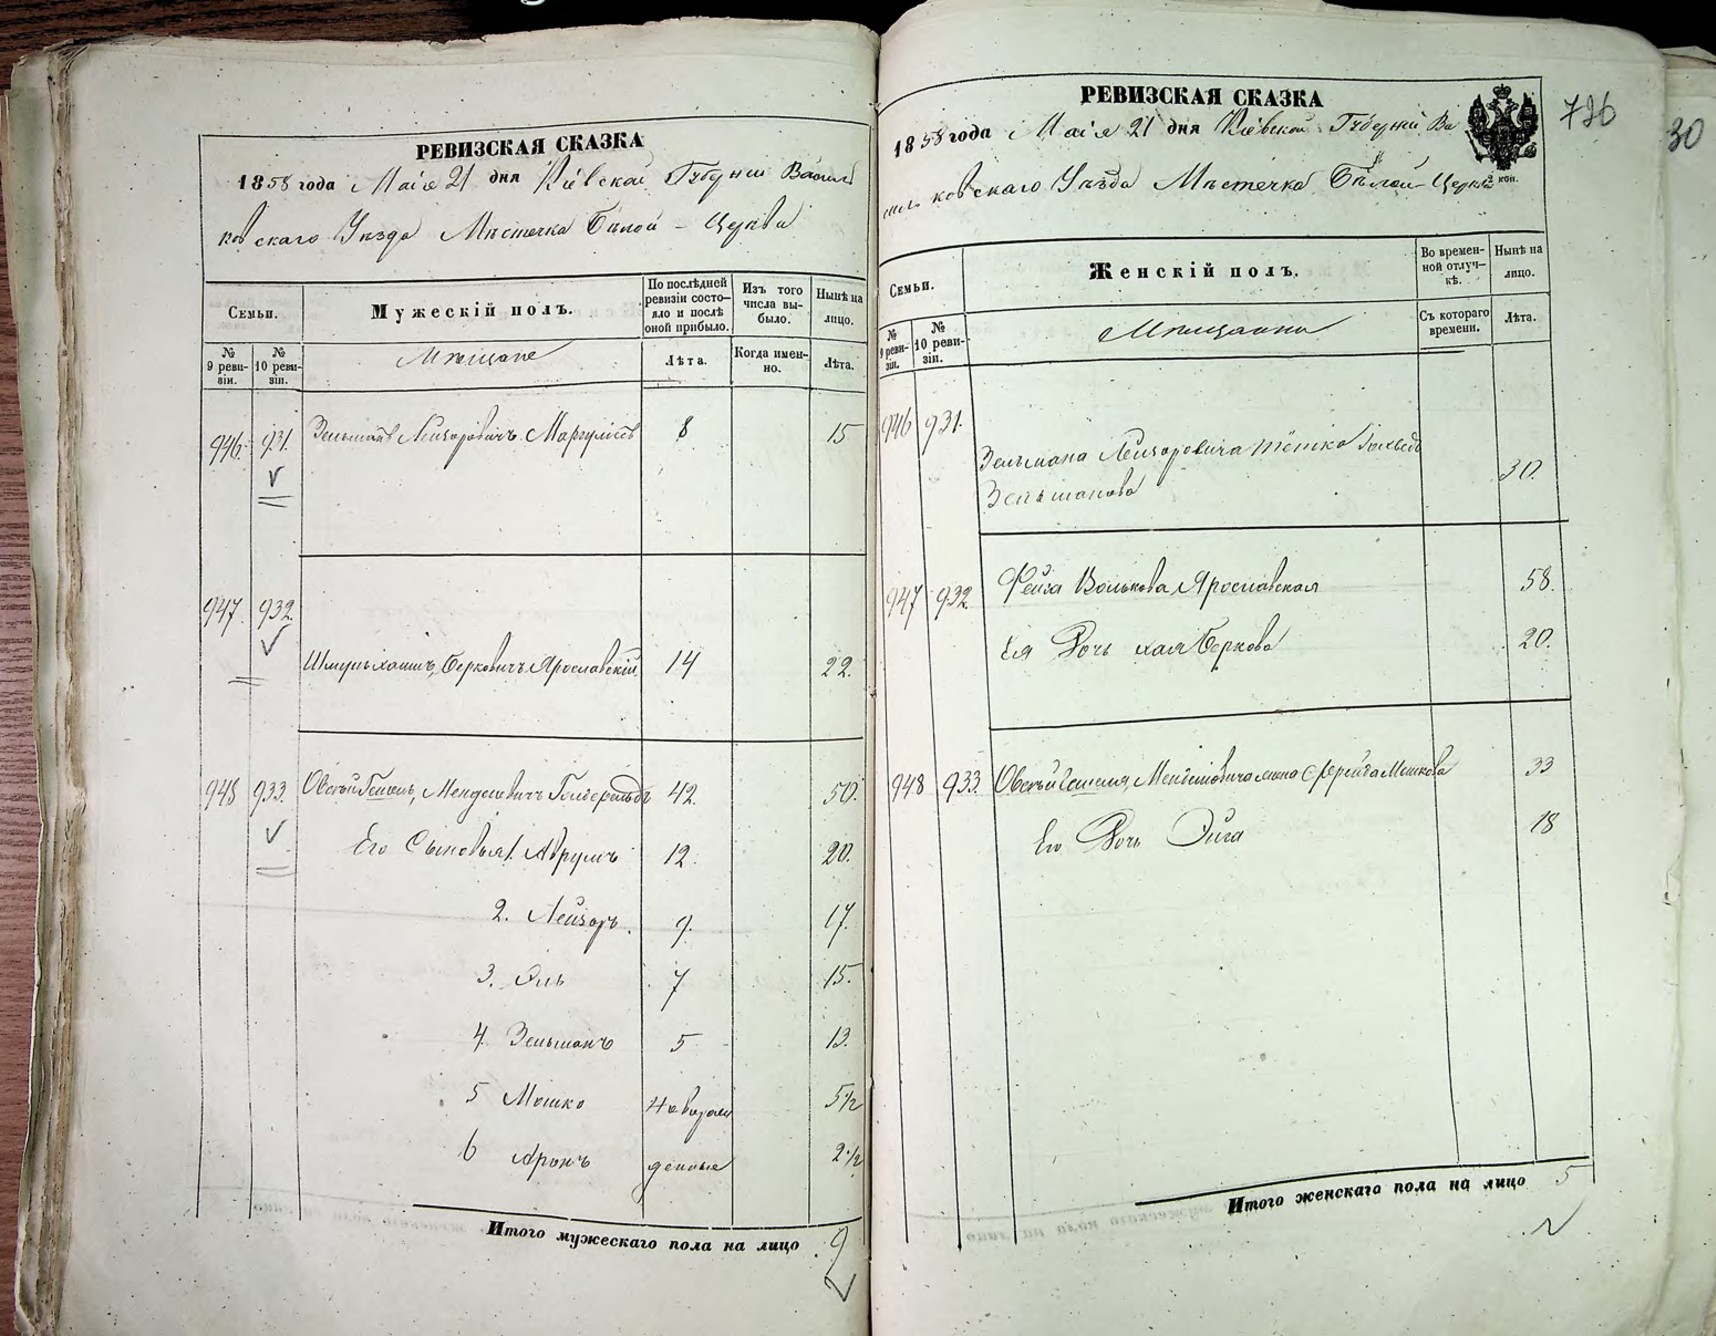 РЕВИЗСКАЯ СКАЗКА
1858 года Маія 21 дня Кіевской Губерніи Васил
ковскаго Уѣзда Мѣстечка Бѣлой - Церкви
Семьи.
Мужескій полъ.
По послѣдней ревизіи состо- яло и послѣ оной прибыло.
Изъ того числа вы- было.
Нынѣ на лицо.
№ 9 реви- зіи.
№ 10 реви- зіи.
Мѣщане
Лѣта.
Когда имен- но.
Лѣта.
946. 931. Зельманъ Лейзоровичъ Маргулисъ 8 15
947. 932.
Шмуль Хаимъ Берковичъ Ярославскій 14 22.
948 933. Овсѣй Менделевичъ 42. 50.
Его Сыновья 1. Аврумъ 12. 20.
2. Лейзоръ. 9. 17.
3. Эль 7 15.
4. Зельманъ 5 13.
5 Мошко новорож 5½
6 Аронъ денные 2½
Итого мужескаго пола на лицо 9
726
30
РЕВИЗСКАЯ СКАЗКА
1858 года Маія 21 дня Кіевской Губерніи Ва
силь ковскаго Уѣзда Мѣстечка Бѣлой - Церкви
коп.
Семьи.
Женскій полъ.
Во времен- ной отлуч- кѣ.
Нынѣ на лицо.
№ 9 реви- зіи.
№ 10 реви- зіи.
Мѣщанки
Съ котораго времени.
Лѣта.
946 931.
Зельмана Лейзоровича тётка
Зельманова 30.
947 932. Фейга Волькова Ярославская 58.
Ея Дочь Хая Беркова 20.
948 933. Овсѣя Менделевича жена Фрейда Мошкова 33
Его Дочь Эйга 18
Итого женскаго пола на лицо 5